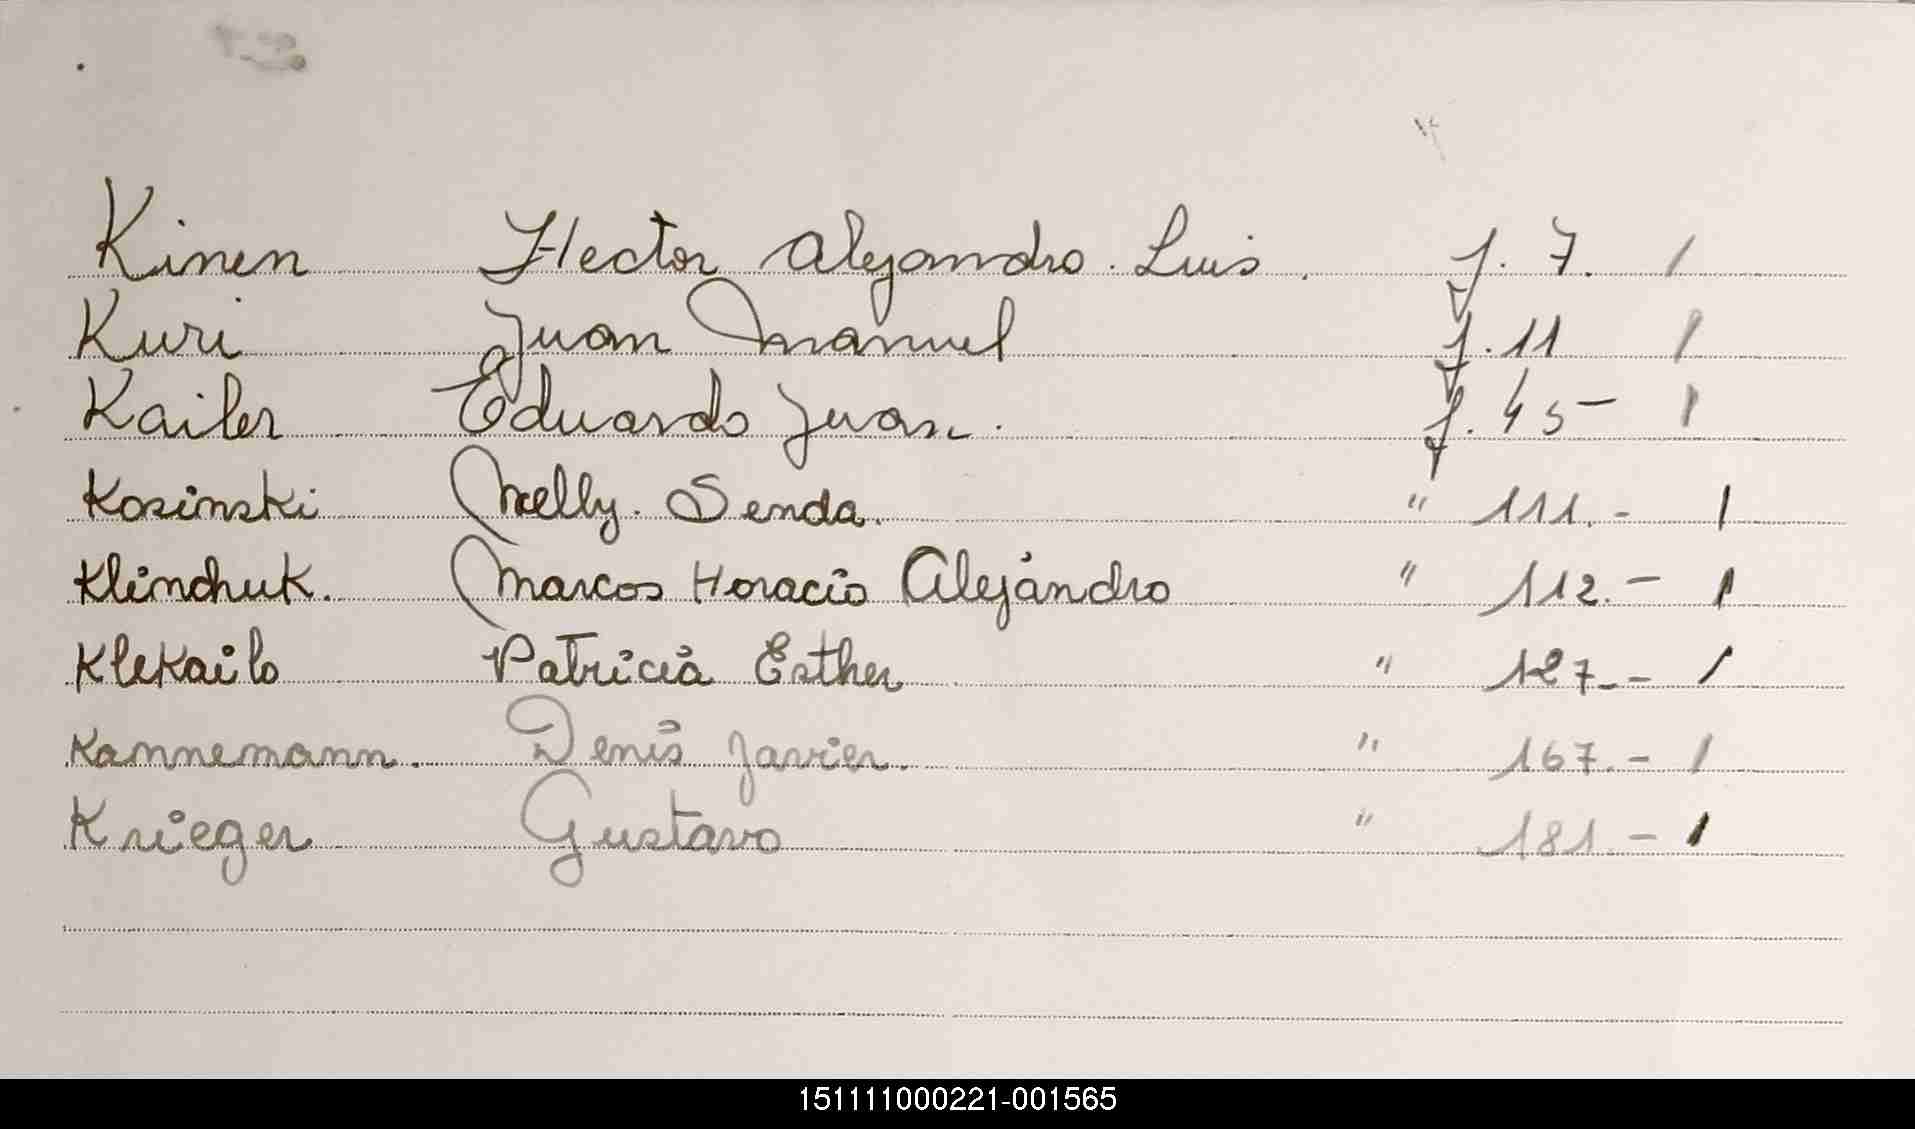 Kinen Hector Alejandro. Luis. f. 7. /
Kuri Juan Manuel f. 11 /
Kailer Eduardo Juan. f. 45 - /
Kosinski Nelly. Senda. " 111. - /
Klinchuk. Marcos Horacio Alejandro " 112. - /
Klekailo Patricia Esther " 127. - /
Kannemann. Denis Javier. " 167. - /
Krieger Gustavo " 181. - /
151111000221-001565